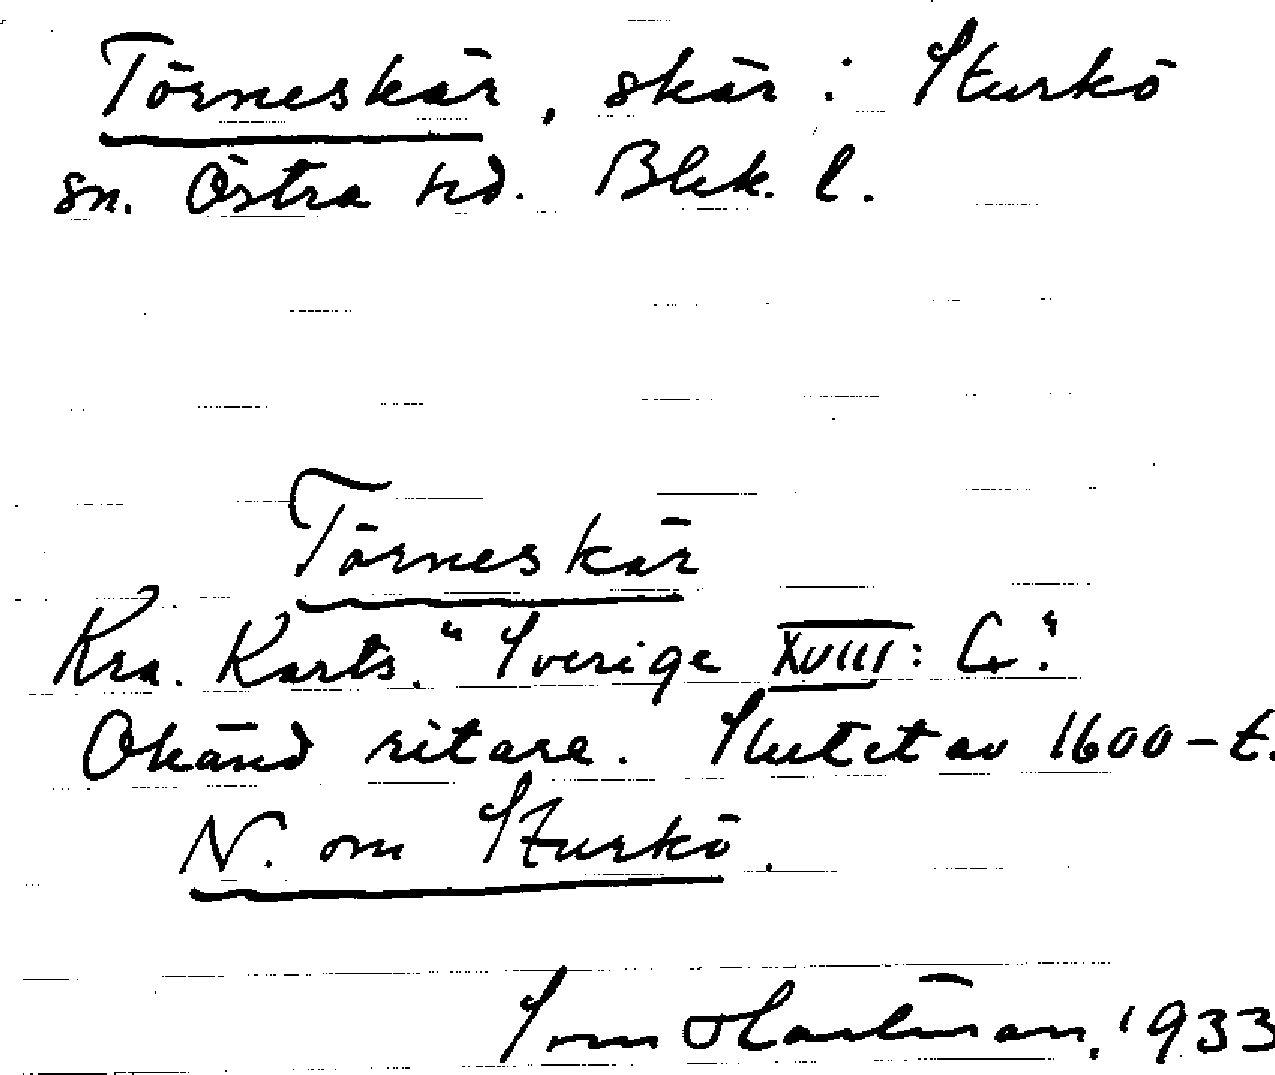 Törneskär, skär: Sturkö
sn. Östra hd. Blek. l.
Törneskär
Kra. Karts. "Sverige XVIII: G."
Okänd ritare. Slutet av 1600-t.
N. om Sturkö.
Sven Hartman, 1933